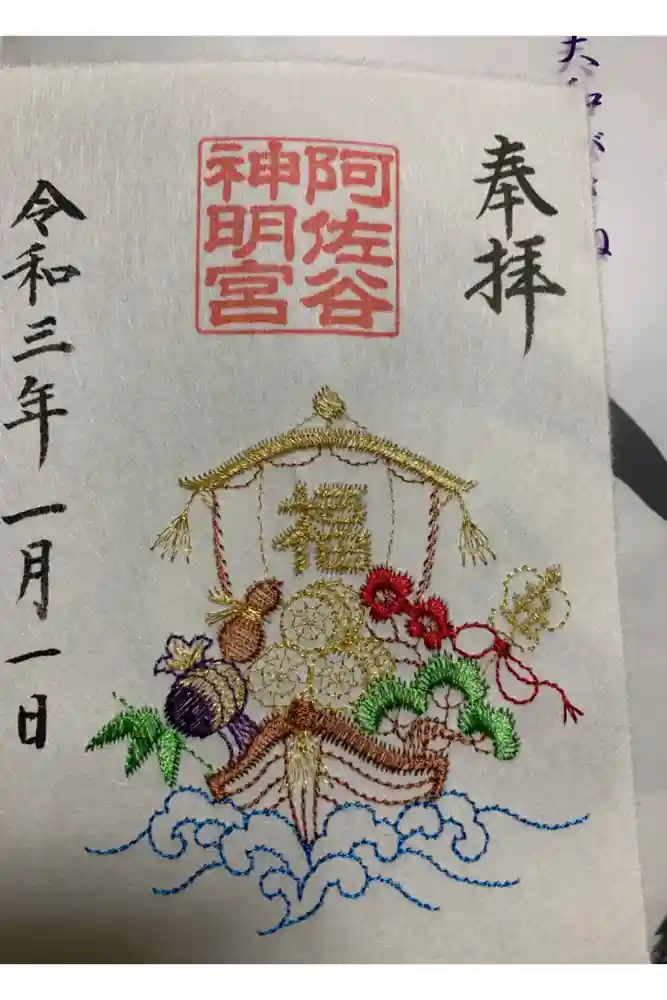 奉拝
阿佐谷
神明宮
福
令和三年一月一日